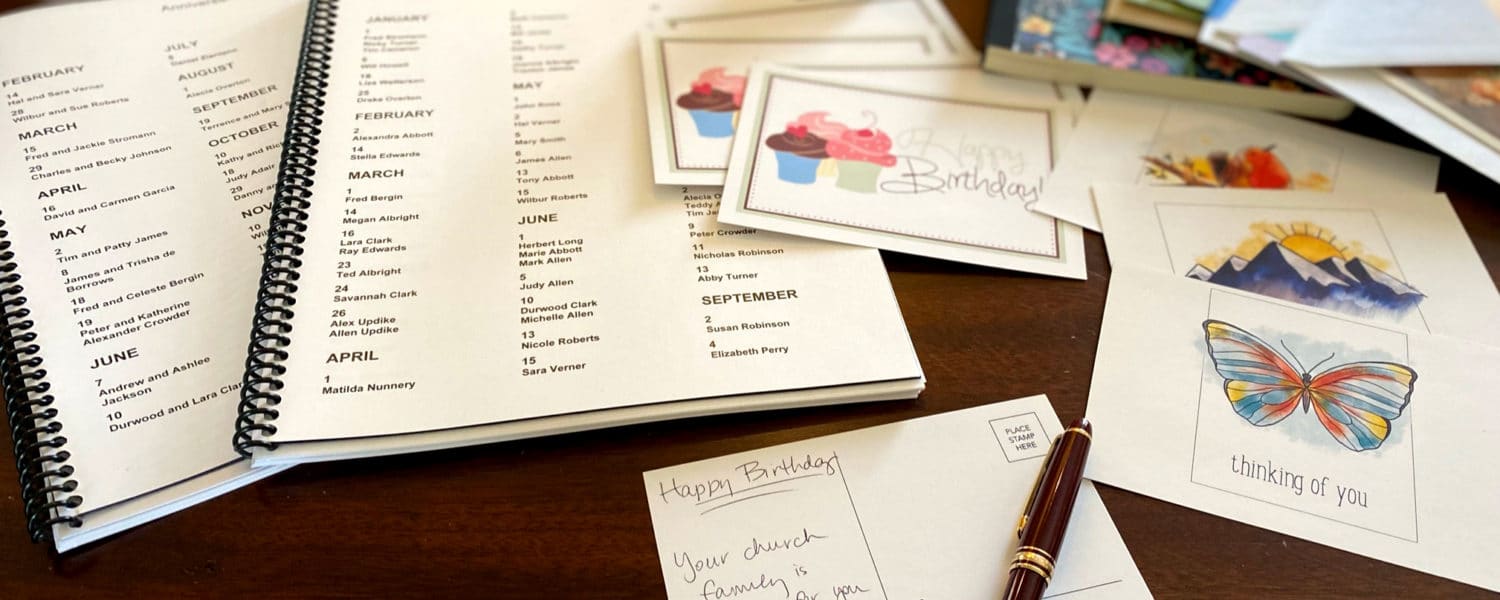 FEBRUARY
14
Hal and Sara Verner
28
Wilbur and Sue Roberts
MARCH
15
Fred and Jackie Stromann
29
Charles and Becky Johnson
APRIL
16
David and Carmen Garcia
MAY
2
Tim and Patty James
8
James and Trisha de
Borrows
18
Fred and Celeste Bergin
19
Peter and Katherine
Alexander Crowder
JUNE
7
Andrew and Ashlee
Jackson
10
Durwood and Lara Clar
JULY
AUGUST
1
Alecia Overton
SEPTEMBER
19
Terrence and Mary
OCTOBER
10
Kathy and
18
Judy Adair
29
Danny
NOV
10
JANUARY
FEBRUARY
2
Alexandra Abbott
14
Stella Edwards
MARCH
1
Fred Bergin
14
Megan Albright
16
Lara Clark
Ray Edwards
23
Ted Albright
24
Savannah Clark
26
Alex Updike
Allen Updike
APRIL
1
Matilda Nunnery
MAY
1
John Ross
2
Hal Verner
5
Mary Smith
6
James Allen
13
Tony Abbott
15
Wilbur Roberts
JUNE
1
Herbert Long
Marie Abbott
Mark Allen
5
Judy Allen
10
Durwood Clark
Michelle Allen
13
Nicole Roberts
15
Sara Verner
2
Alecia O
Teddy
Tim
9
Peter Crowder
11
Nicholas Robinson
13
Abby Turner
SEPTEMBER
2
Susan Robinson
4
Elizabeth Perry
Happy
Birthday!
thinking of you
PLACE
STAMP
HERE
Happy Birthday
Your church
family is
for you